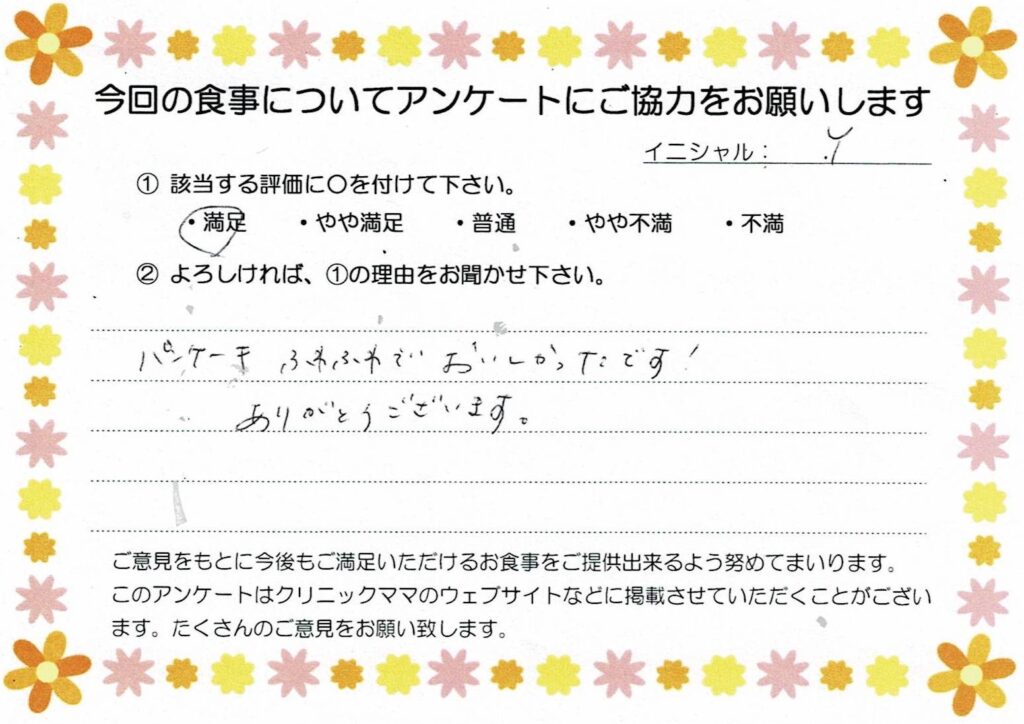 今回の食事についてアンケートにご協力をお願いします
イニシャル： .Y
① 該当する評価に〇を付けて下さい。
・満足 ・やや満足 ・普通 ・やや不満 ・不満
② よろしければ、①の理由をお聞かせ下さい。
パンケーキ ふわふわで おいしかったです！
ありがとうございます。
ご意見をもとに今後もご満足いただけるお食事をご提供出来るよう努めてまいります。
このアンケートはクリニックママのウェブサイトなどに掲載させていただくことがござい
ます。たくさんのご意見をお願い致します。